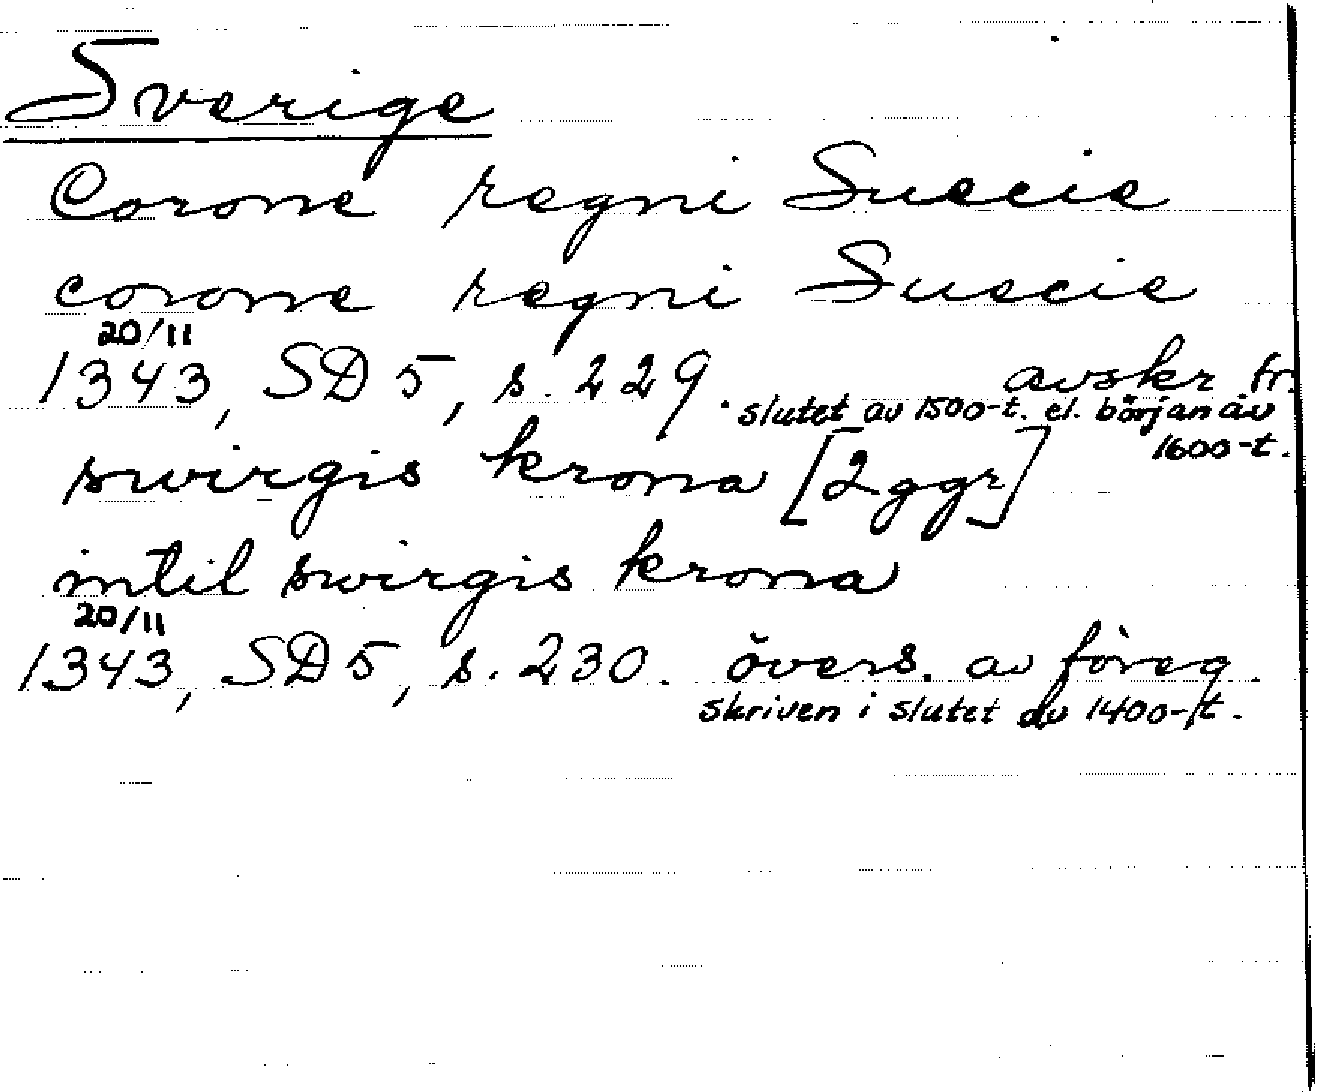 Sverige
Corone regni Suecie
corone regni Suecie
20/11
1343, SD 5, s. 229. avskr fr.
slutet av 1500-t. el. början av
1600-t.
swirgis krona [2 ggr]
intil swirgis krona
20/11
1343, SD 5, s. 230. övers. av föreg.
skriven i slutet av 1400-t.